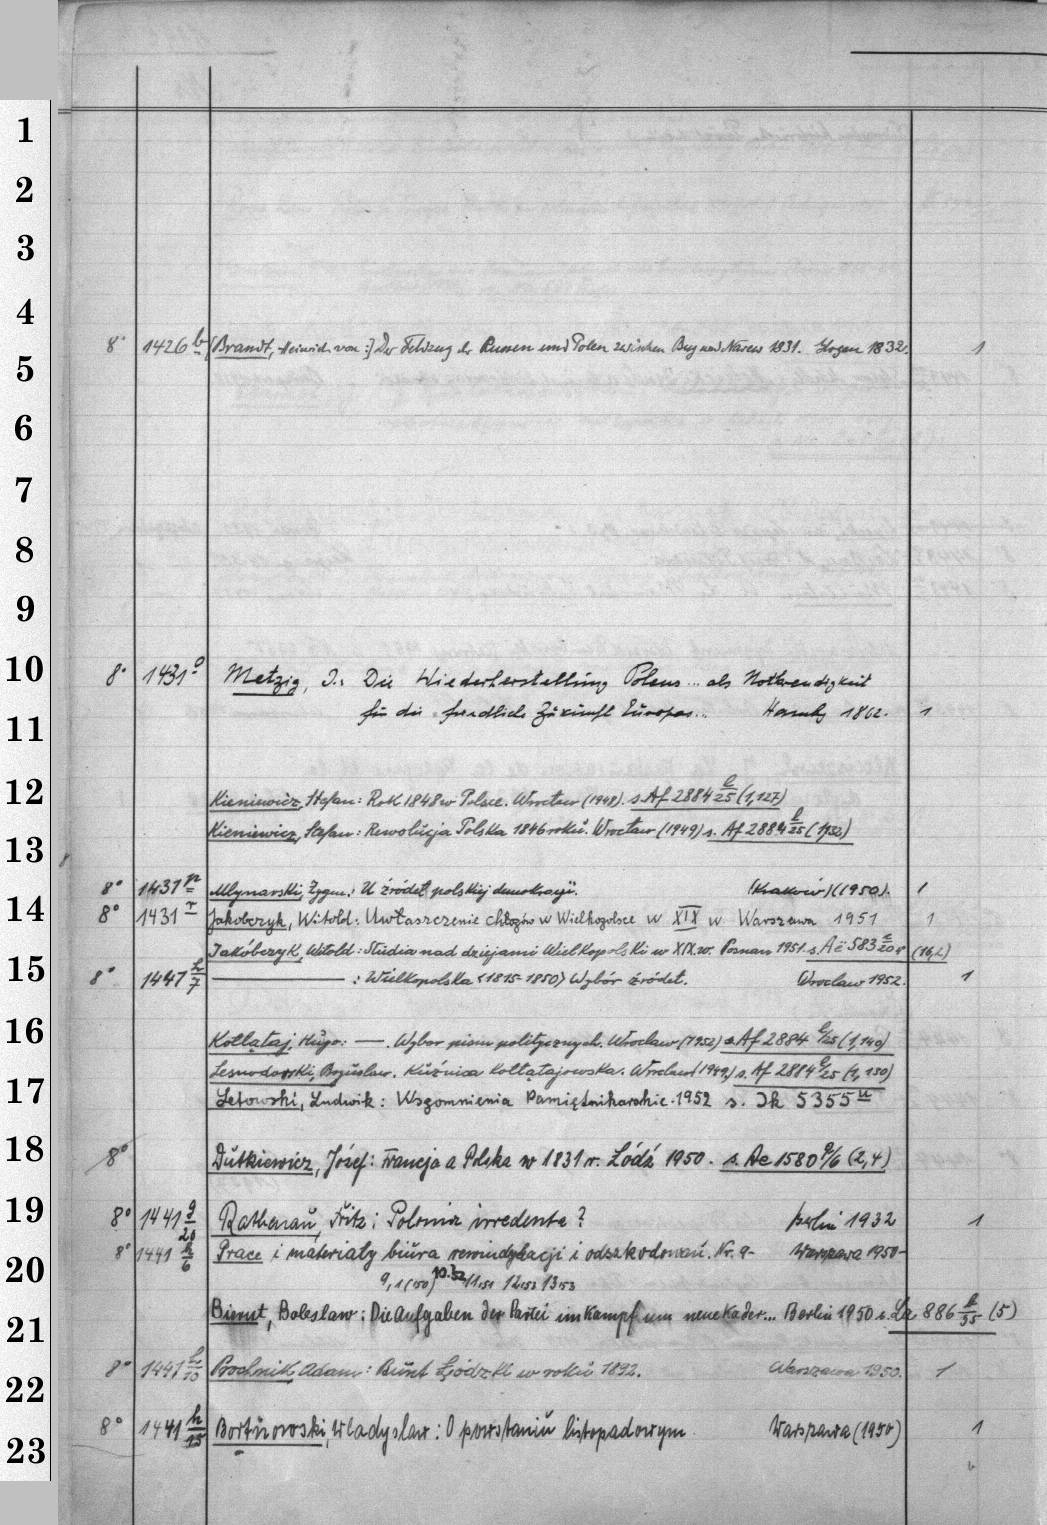 1
2
3
4
8° 1426 b (Brandt, Heinrich von:) Der Feldzug der Russen und Polen zwischen Bug und Narew 1831. Glogau 1832. 1
5
6
7
8
9
10 8° 1431 o Metzig, J.: Die Wiederherstellung Polens ... als Nothwendigkeit
für die friedliche Zukunft Europas... Hamb. 1862. 1
11
12 Kieniewicz, Stefan: Rok 1848 w Polsce. Wrocław (1948). s. Af 2884 l/25 (1,127)
Kieniewicz, Stefan: Rewolucja Polska 1846 roku. Wrocław (1949) s. Af 2884 l/25 (1,132)
13
8° 1431 p Mlynarski, Zygm.: U źródeł polskiej demokracji. (Kraków) (1950). 1
14 8° 1431 r Jakóbczyk, Witold: Uwłaszczenie chłopów w Wielkopolsce w XIX w Warszawa 1951 1
Jakóbczyk, Witold: Studia nad dziejami Wielkopolski w XIX.w. Poznan 1951. s. Ac 583 (16,2)
15 8° 1447 h/7 ——— : Wielkopolska <1815-1850> Wybór źródeł. Wroclaw 1952. 1
16 Kołłątaj, Hugo: —. Wybor pism politycznych. Wrocław (1952) s. Af 2884 l/25 (1,140)
Lesnodorski, Bogusław. Kuźnica Kołłątajowska. Wrocław (1949) s. Af 2884 l/25 (1,130)
17 Łetowski, Ludwik: Wspomnienia Pamiętnikarskie. 1952 s. Jk 5355 u
18 8° Dutkiewicz, Józef: Francja a Polska w 1831 r. Łódź 1950. s. Ac 1580 a/6 (2,4)
19 8° 1441 g/20 Rathenau, Fritz: Polonia irredenta? Berlin 1932 1
8° 1441 h/6 Prace i materiały biura rewindykacji i odszkodowań. Nr. 9- Warszawa 1950-
20 9,1(50) 10.52 11,51 12,53 13,53
21 Bierut, Boleslaw: Die Aufgaben der Partei im Kampf um neue Kader... Berlin 1950 s. La 886 h/35 (5)
8° 1441 h/10 Prochnik, Adam: Bunt Łódzki w roku 1892. Warszawa 1950. 1
22
23 8° 1441 h/15 Bortnowski, Wladyslaw: O powstaniu listopadowym Warszawa (1950) 1